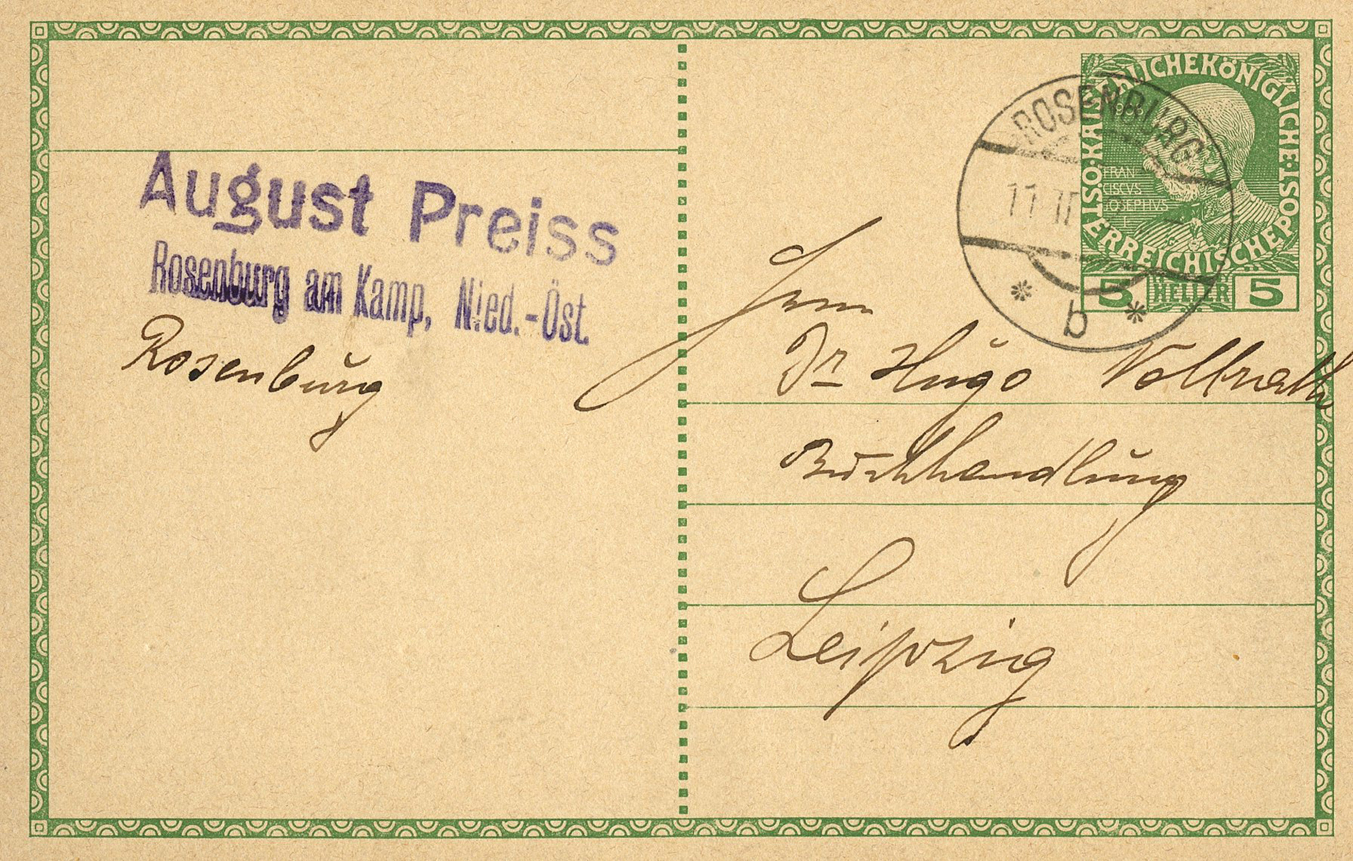 August Preiss
Rosenburg am Kamp, Nied.-Öst.
Rosenburg
KAISERLICHE KÖNIGLICHE ÖSTERREICHISCHE POST
FRAN
CISCVS
IOSEPHVS
5 HELLER 5
ROSENBURG
11 II
* b *
Herrn
Dr Hugo Vollrath
Buchhandlung
Leipzig